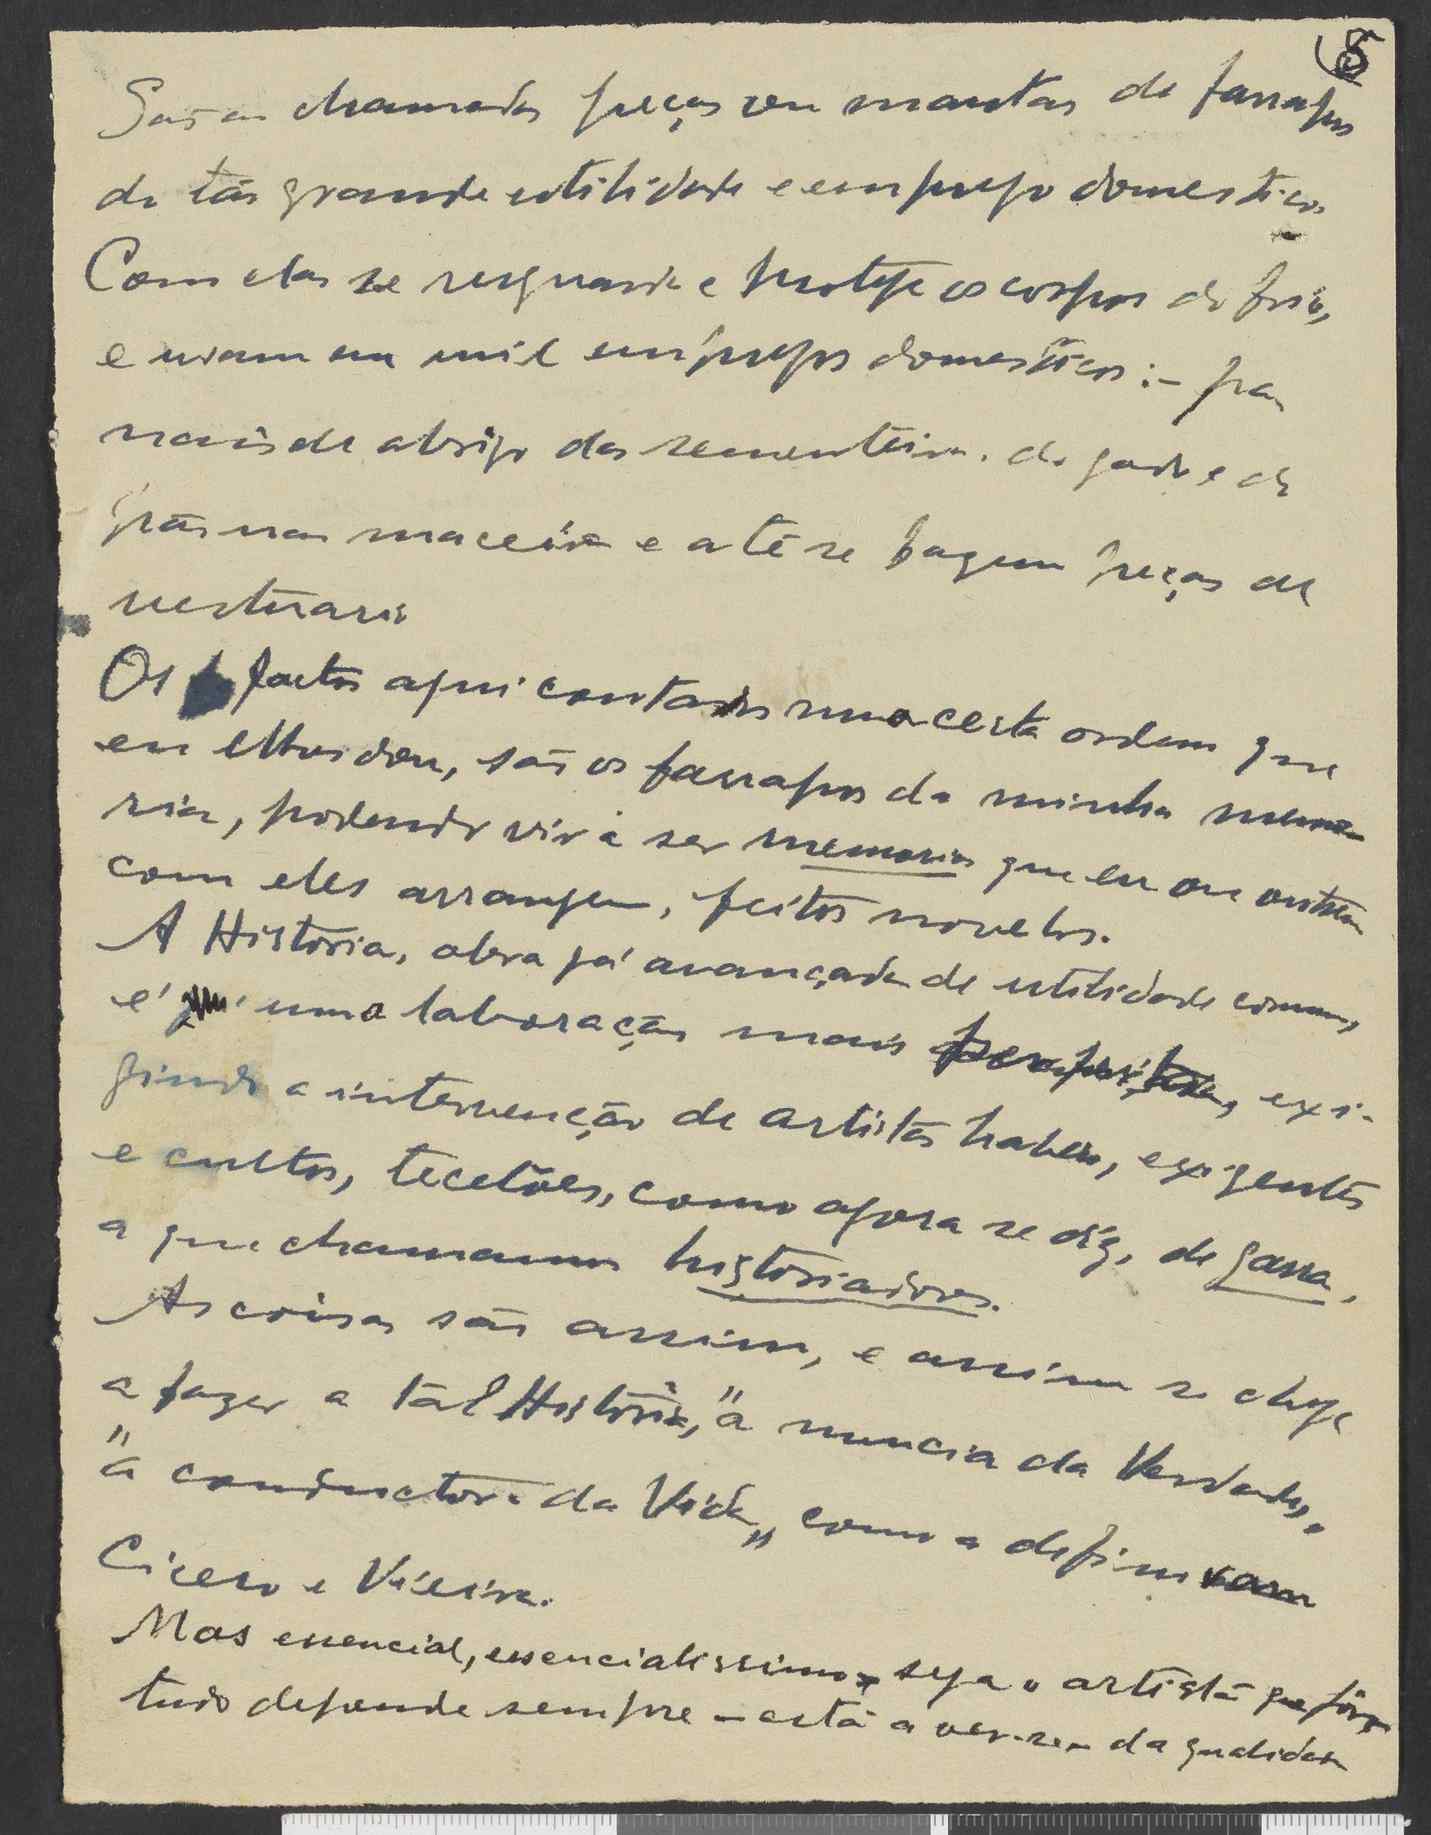 5
São as chamadas peças ou mantas de farrapos
de tão grande utilidade e emprego domesticos
Com elas se resguarda e proteje os corpos do frio,
e usam em mil empregos domesticos:- pa
nais de abrigo das sementeiras, do gado e do
pão nas maceiras e até se fazem peças de
vestuario
Os factos aqui contados numa certa ordem que
eu lhes dou, são os farrapos da minha memo-
ria, podendo vir a ser memorias que eu ou outrem
com eles arrangem, feitos novelos.
A Historia, obra já avançada de utilidade comum,
é uma laboração mais, exi-
gindo a intervenção de artistas habeis, exigentes
e cultos, tecelões, como agora se diz, de garra,
a que chamamos historiadores.
As coisas são assim, e assim se chega
a fazer a tal Historia, "a nuncia da Verdade,"
"a conductora da Vida", como a definiram
Cicero e Vieira.
Mas essencial, essencialissimo, seja o artista que fôr,
tudo depende sempre - está a ver-se - da qualidade